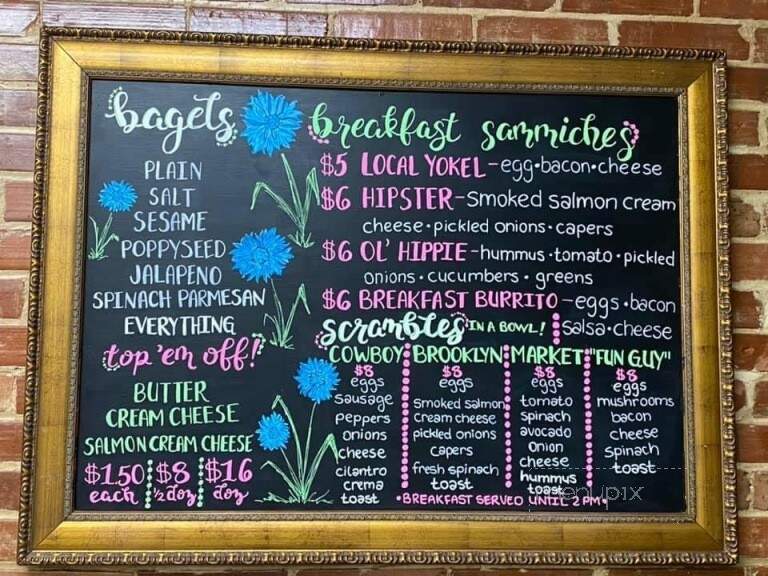 bagels
PLAIN
SALT
SESAME
POPPYSEED
JALAPENO
SPINACH PARMESAN
EVERYTHING
top 'em off!
BUTTER
CREAM CHEESE
SALMON CREAM CHEESE
$1.50 each
$8 ½ doz
$16 doz
breakfast sammiches
$5 LOCAL YOKEL - egg • bacon • cheese
$6 HIPSTER - smoked salmon cream
cheese • pickled onions • capers
$6 OL' HIPPIE - hummus • tomato • pickled
onions • cucumbers • greens
$6 BREAKFAST BURRITO - eggs • bacon
salsa • cheese
scrambles IN A BOWL!
COWBOY
$8
eggs
sausage
peppers
onions
cheese
cilantro
crema
toast
BROOKLYN
$8
eggs
smoked salmon
cream cheese
pickled onions
capers
fresh spinach
toast
MARKET
$8
eggs
tomato
spinach
avocado
onion
cheese
hummus
toast
"FUN GUY"
$8
eggs
mushrooms
bacon
cheese
spinach
toast
•BREAKFAST SERVED UNTIL 2 PM•
menupix